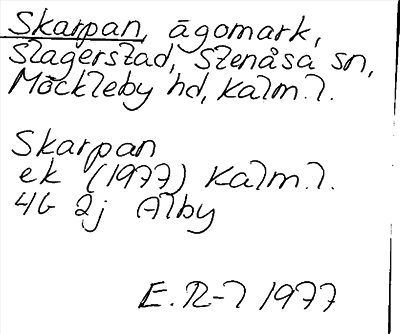 Skarpan, ägomark,
Slagerstad, Stenåsa sn,
Möckleby hd, Kalm.l.
Skarpan
ek (1977) Kalm.l.
4G 2j Alby
E.R-l 1977